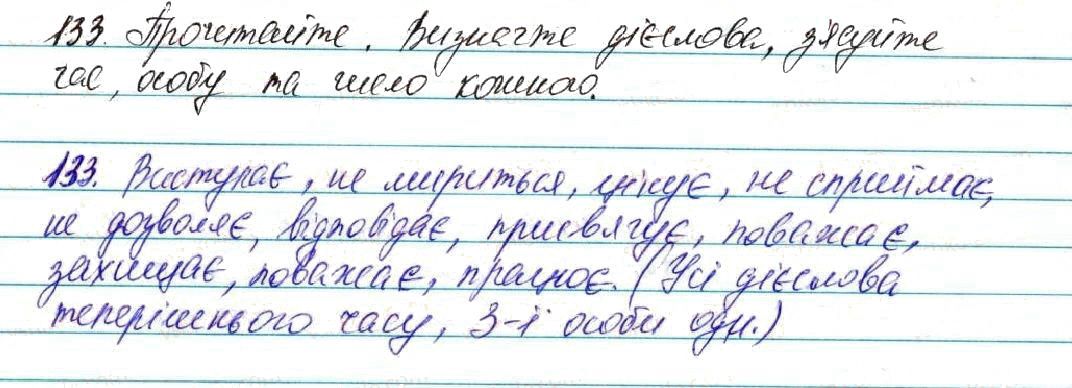 133. Прочитайте. Визначте дієслова, з'ясуйте
час, особу та число кожного.
133. Виступає, не мириться, цінує, не сприймає,
не дозволяє, відповідає, присвячує, поважає,
захищає, поважає, працює. (Усі дієслова
теперішнього часу, 3-ї особи одн.)